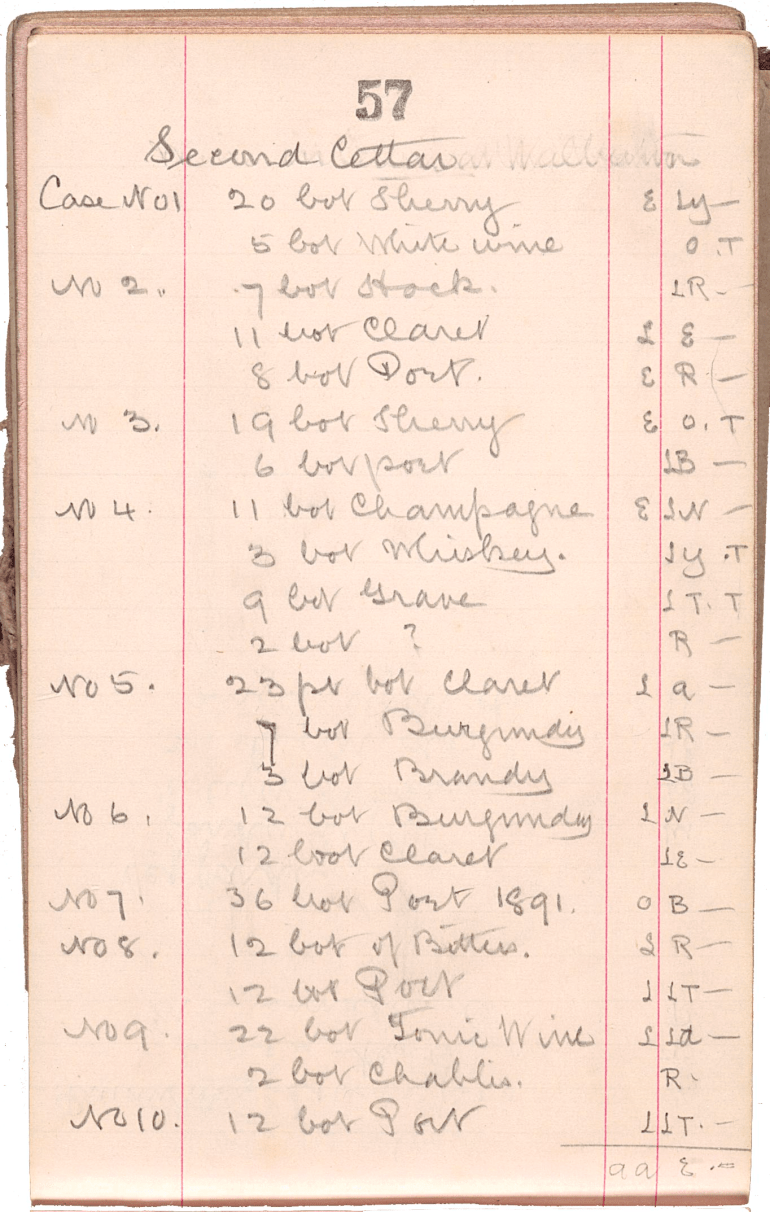 57
Second Cellar
Case No 1 20 bot Sherry £ Ly —
5 bot White wine O . T
No 2. 7 bot Hock. LR —
11 bot Claret L £ —
8 bot Port. £ R —
No 3. 19 bot Sherry £ O. T
6 bot port LB —
No 4. 11 bot Champagne £ LN —
3 bot Whiskey. Ly . T
9 bot Grave L T. T
2 bot ? R —
No 5. 23 pt bot Claret L a —
7 bot Burgundy LR —
3 bot Brandy LB —
No 6. 12 bot Burgunday L N —
12 boot Claret LE —
No 7. 36 bot Port 1891. O B —
No 8. 12 bot of Bitters. L R —
12 bot Port L LT —
No 9. 22 bot Tonic Wine L Ld —
2 bot Chablis. R.
No 10. 12 bot Port L LT. —
a a £ . —